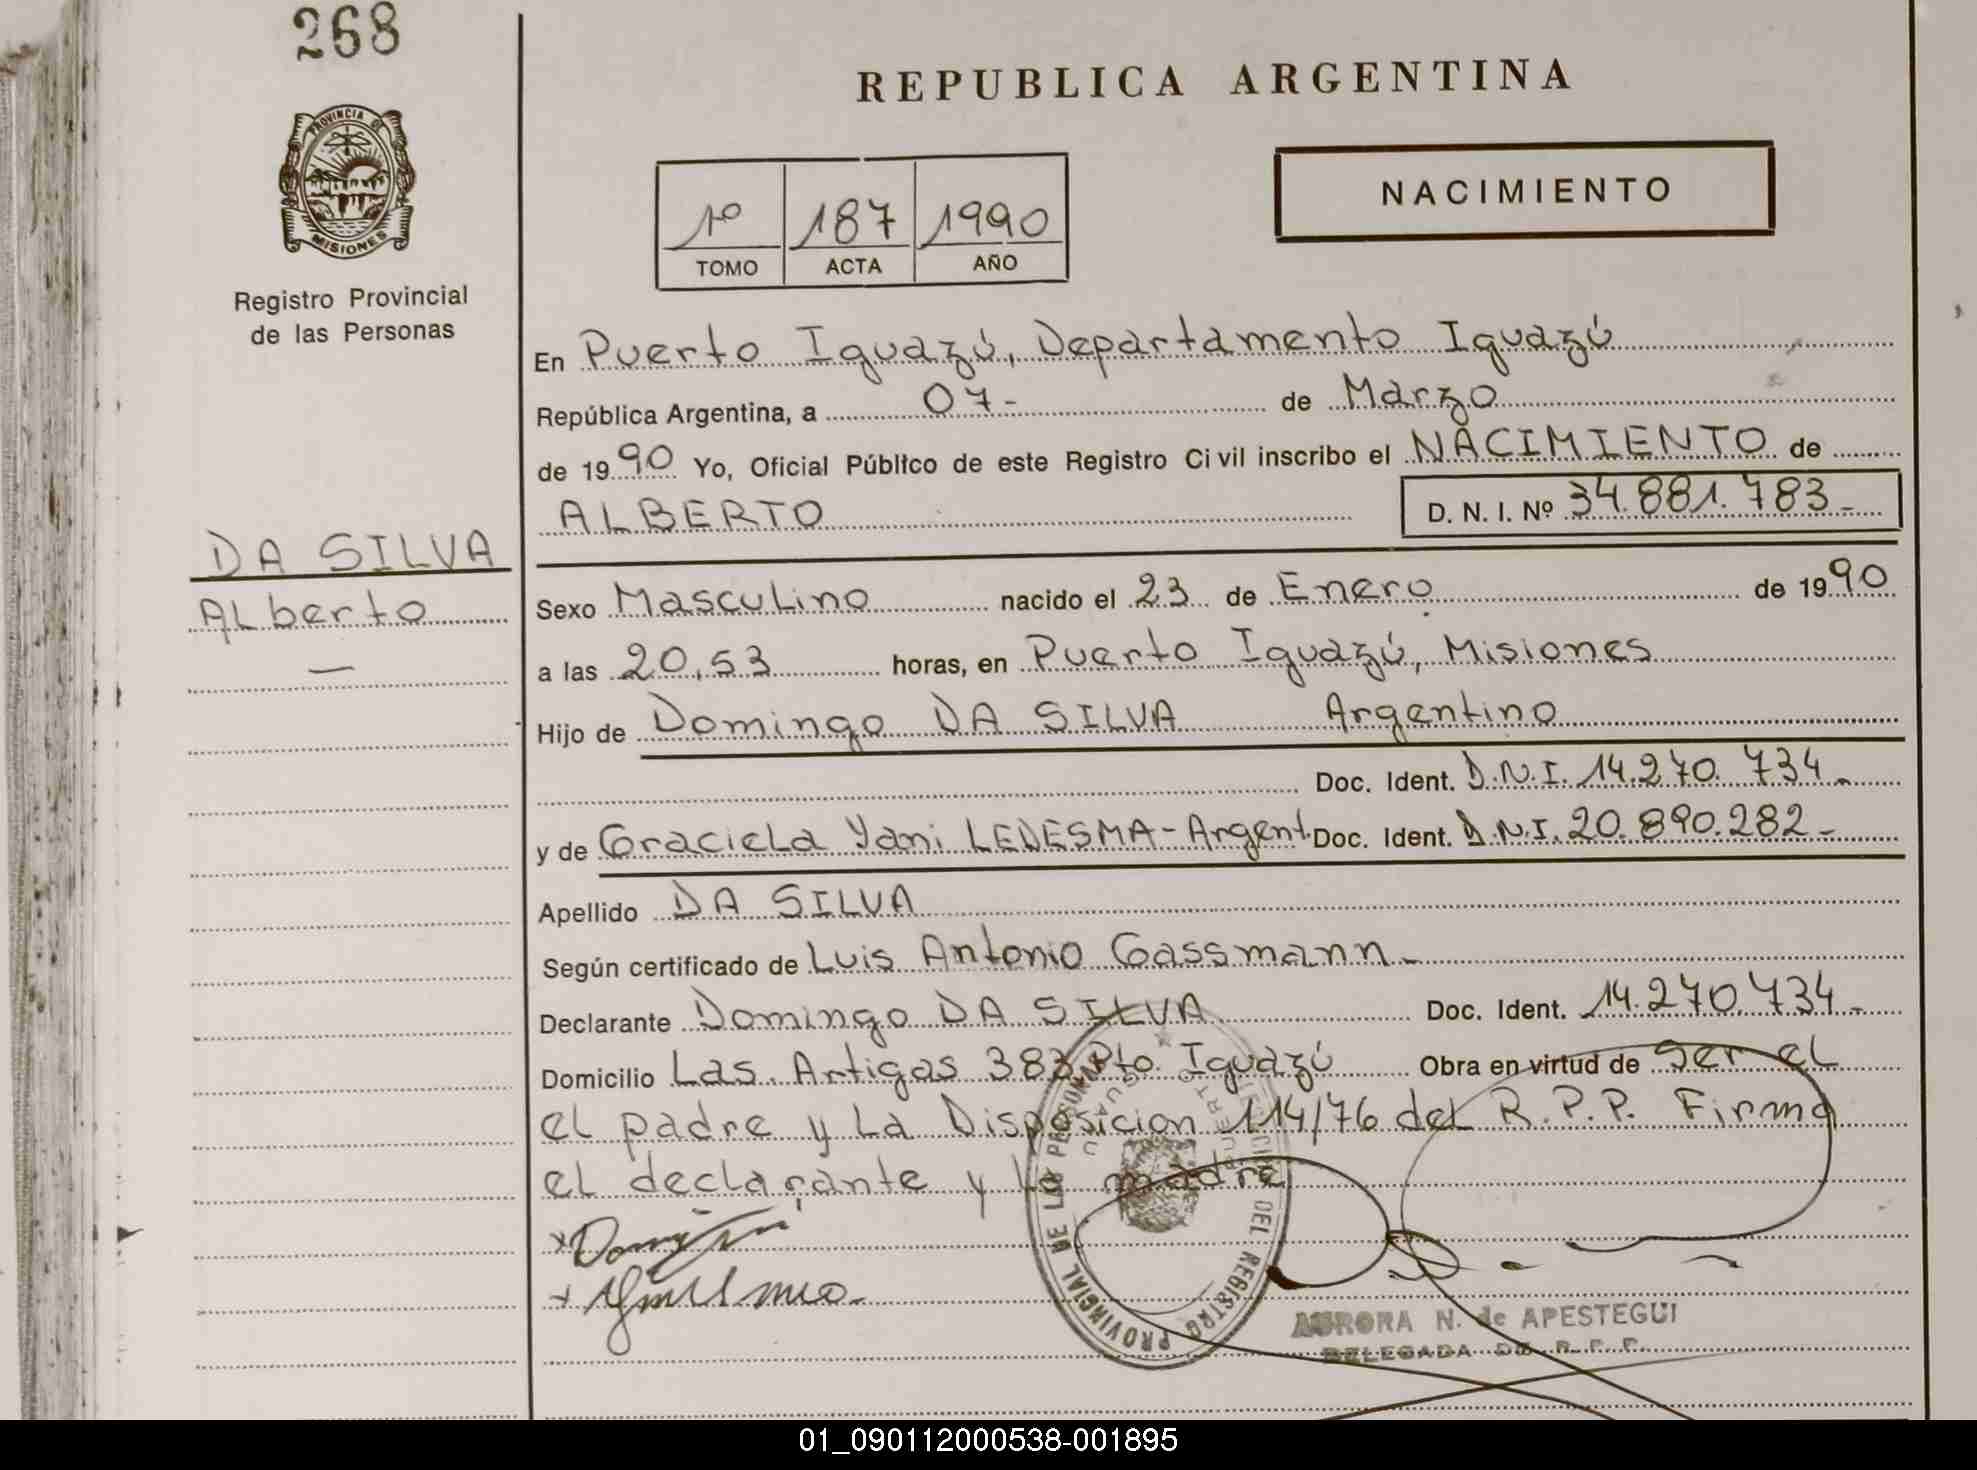 268
PROVINCIA DE
MISIONES
Registro Provincial
de las Personas
DA SILVA
ALberto
—
REPUBLICA ARGENTINA
NACIMIENTO
1º 187 1990
TOMO ACTA AÑO
En Puerto Iguazú, Departamento Iguazú
República Argentina, a 07- de Marzo
de 1990 Yo, Oficial Público de este Registro Civil inscribo el NACIMIENTO de
ALBERTO D. N. I. Nº 34.881.783-
Sexo MascuLino nacido el 23 de Enero de 1990
a las 20,53 horas, en Puerto Iguazú, Misiones
Hijo de Domingo DA SILVA Argentino
Doc. Ident. D.N.I. 14.270.734-
y de GracieLa Yani LEDESMA-Argent. Doc. Ident. D.N.I. 20.890.282-
Apellido DA SILVA
Según certificado de Luis Antonio Gassmann-
Declarante Domingo DA SILVA Doc. Ident. 14.270.734-
Domicilio Las Artigas 383 Pto Iguazú Obra en virtud de ser eL
eL padre y La Disposicion 114/76 del R.P.P. Firma
eL declarante y la madre
PROVINCIAL DE LAS PERSONAS
DEL REGISTRO
AURORA N. de APESTEGUI
DELEGADA DE R. P. P.
01_090112000538-001895